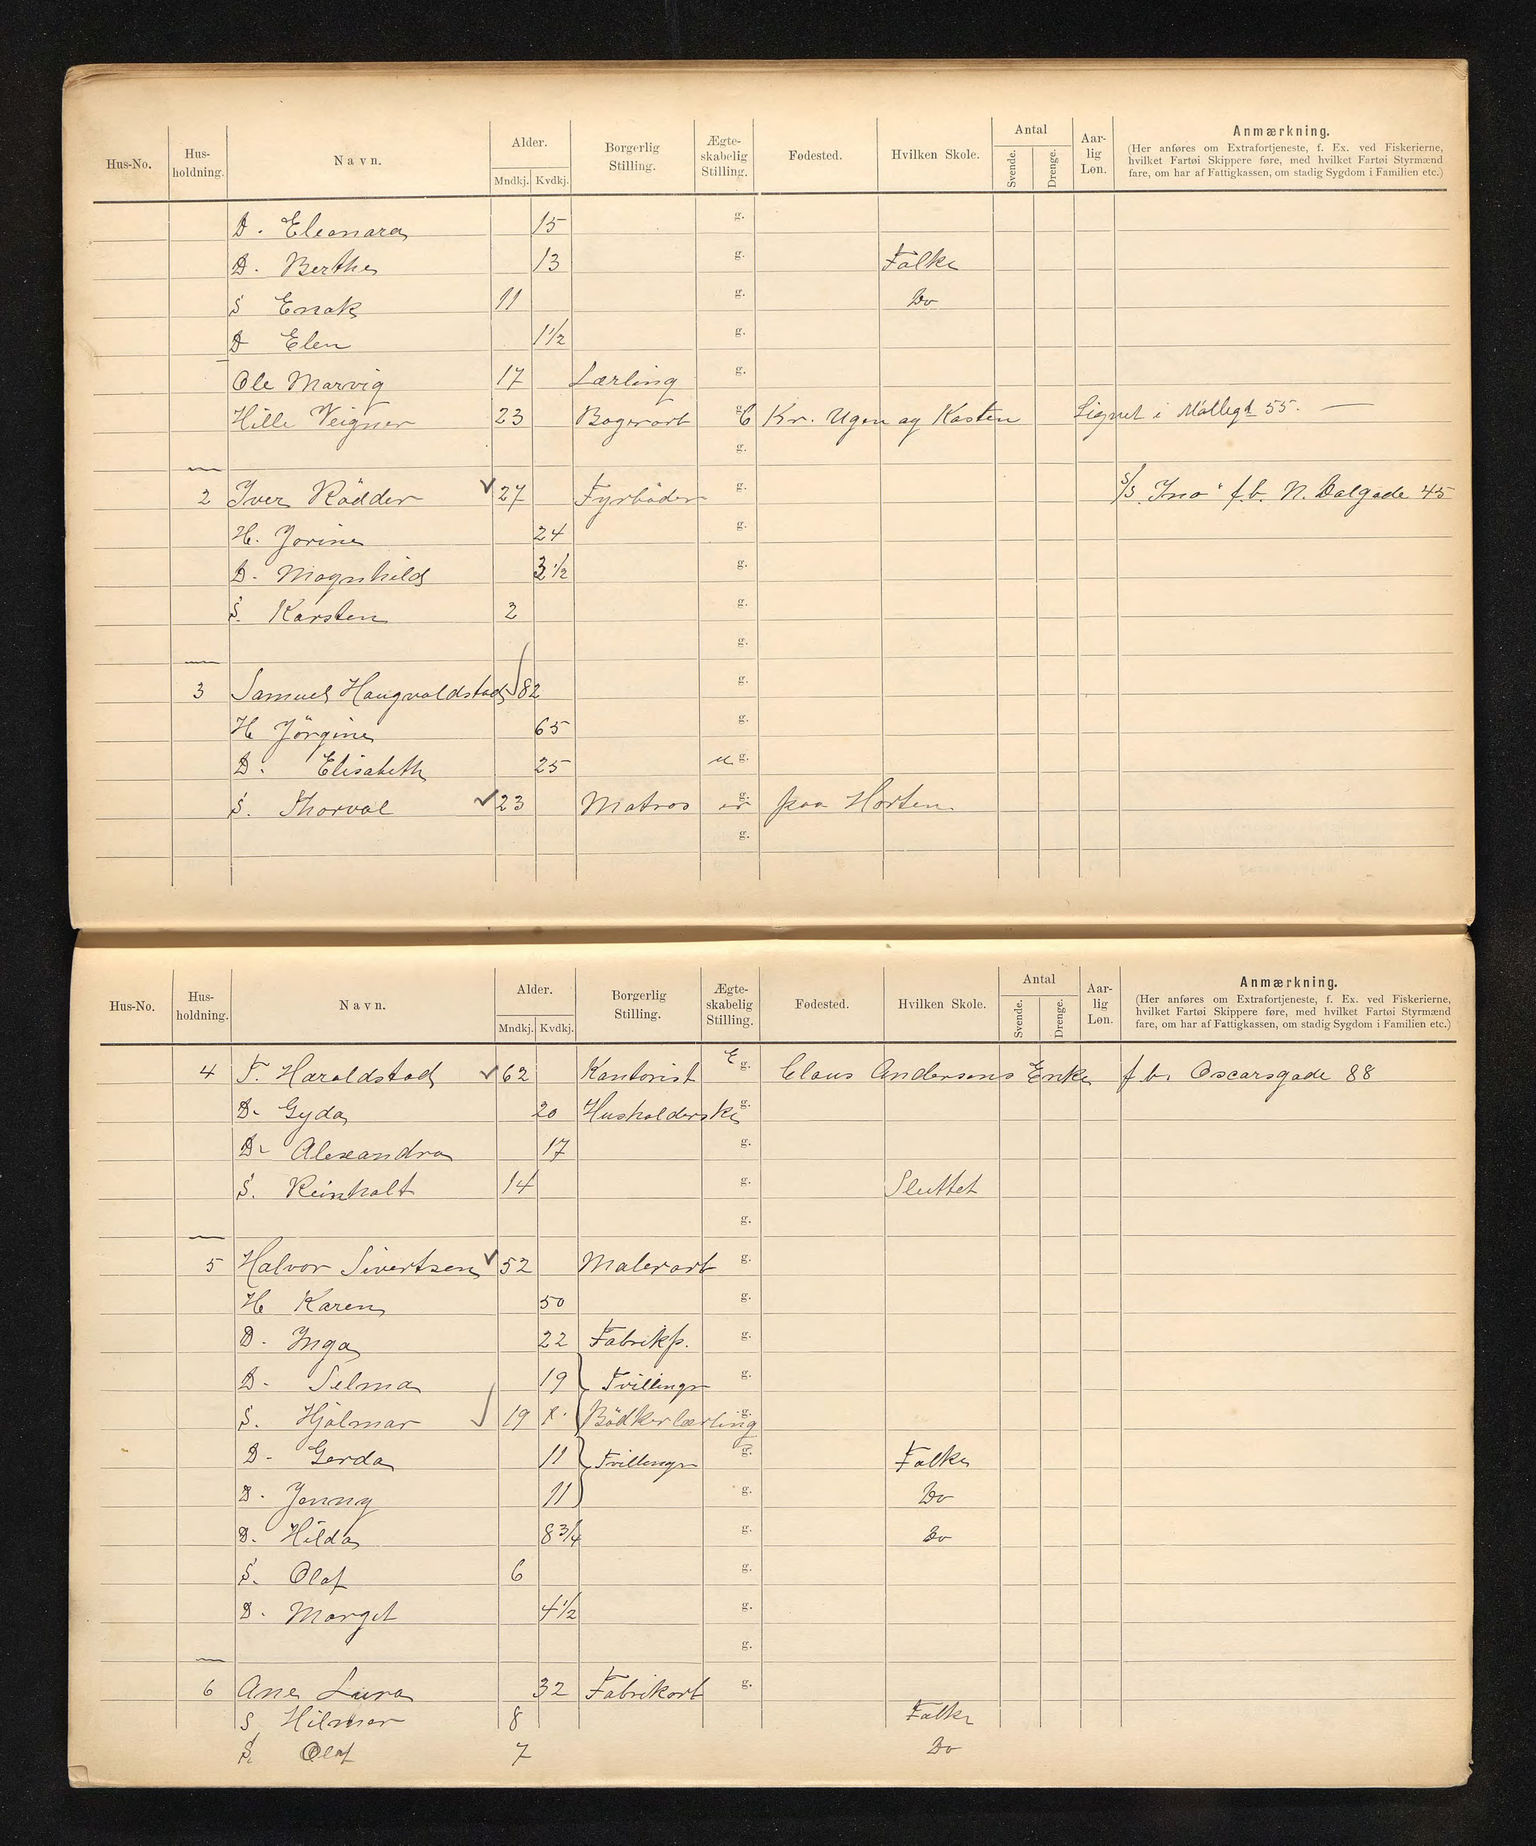 Hus-No. Hus-holdning. Navn. Alder. Mndkj. Kvdkj. Borgerlig Stilling. Ægte-skabelig Stilling. Fødested. Hvilken Skole. Antal Svende. Drenge. Aar-lig Løn. Anmærkning.
(Her anføres om Extrafortjeneste, f. Ex. ved Fiskerierne,
hvilket Fartøi Skippere føre, med hvilket Fartøi Styrmænd
fare, om har af Fattigkassen, om stadig Sygdom i Familien etc.)
D. Eleonora 15 g.
D. Berthe 13 g. Folke
S Enok 11 g. Do
D Elen 1 1/2 g.
Ole Marvig 17 Lærling g.
Hille Veigner 23 Bagerarb g. Kr. Ugen og Kosten Lignet i 55. —
g.
2 Iver Rödder 27 Fyrböder g. S/S "Ino" f. b. N. Dalgade 45
H. Jorine 24 g.
D. Magnhild 3 1/2 g.
S. Karsten 2 g.
g.
3 Samuel Haugvaldstad 82 g.
H Jörgine 65 g.
D. Elisabeth 25 u g.
S. Thorval 23 Matros er g. paa Horten.
g.
Hus-No. Hus-holdning. Navn. Alder. Mndkj. Kvdkj. Borgerlig Stilling. Ægte-skabelig Stilling. Fødested. Hvilken Skole. Antal Svende. Drenge. Aar-lig Løn. Anmærkning.
(Her anføres om Extrafortjeneste, f. Ex. ved Fiskerierne,
hvilket Fartøi Skippere føre, med hvilket Fartøi Styrmænd
fare, om har af Fattigkassen, om stadig Sygdom i Familien etc.)
4 T. Haraldstad 62 Kontorist E g. Claus Andersens Enke f. b. Oscarsgade 88
D. Gyda 20 Husholderske g.
D. Alexandra 17 g.
S. Reinholt 14 g. Sluttet
g.
5 Halvor Sivertsen 52 Malerarb g.
H Karen 50 g.
D. Inga 22 Fabrikp. g.
D. Selma 19 Tvillinger g.
S. Hjalmar 19 Bödkerlærling g.
D. Gerda 11 Tvillinger g. Folke
D. Jenny 11 g. Do
D. Hilda 8 3/4 g. Do
S. Olaf 6 g.
D. Marget 4 1/2 g.
g.
6 Ane Lura 32 Fabrikarb g.
S Hilmar 8 Folke
S. Olaf 7 Do